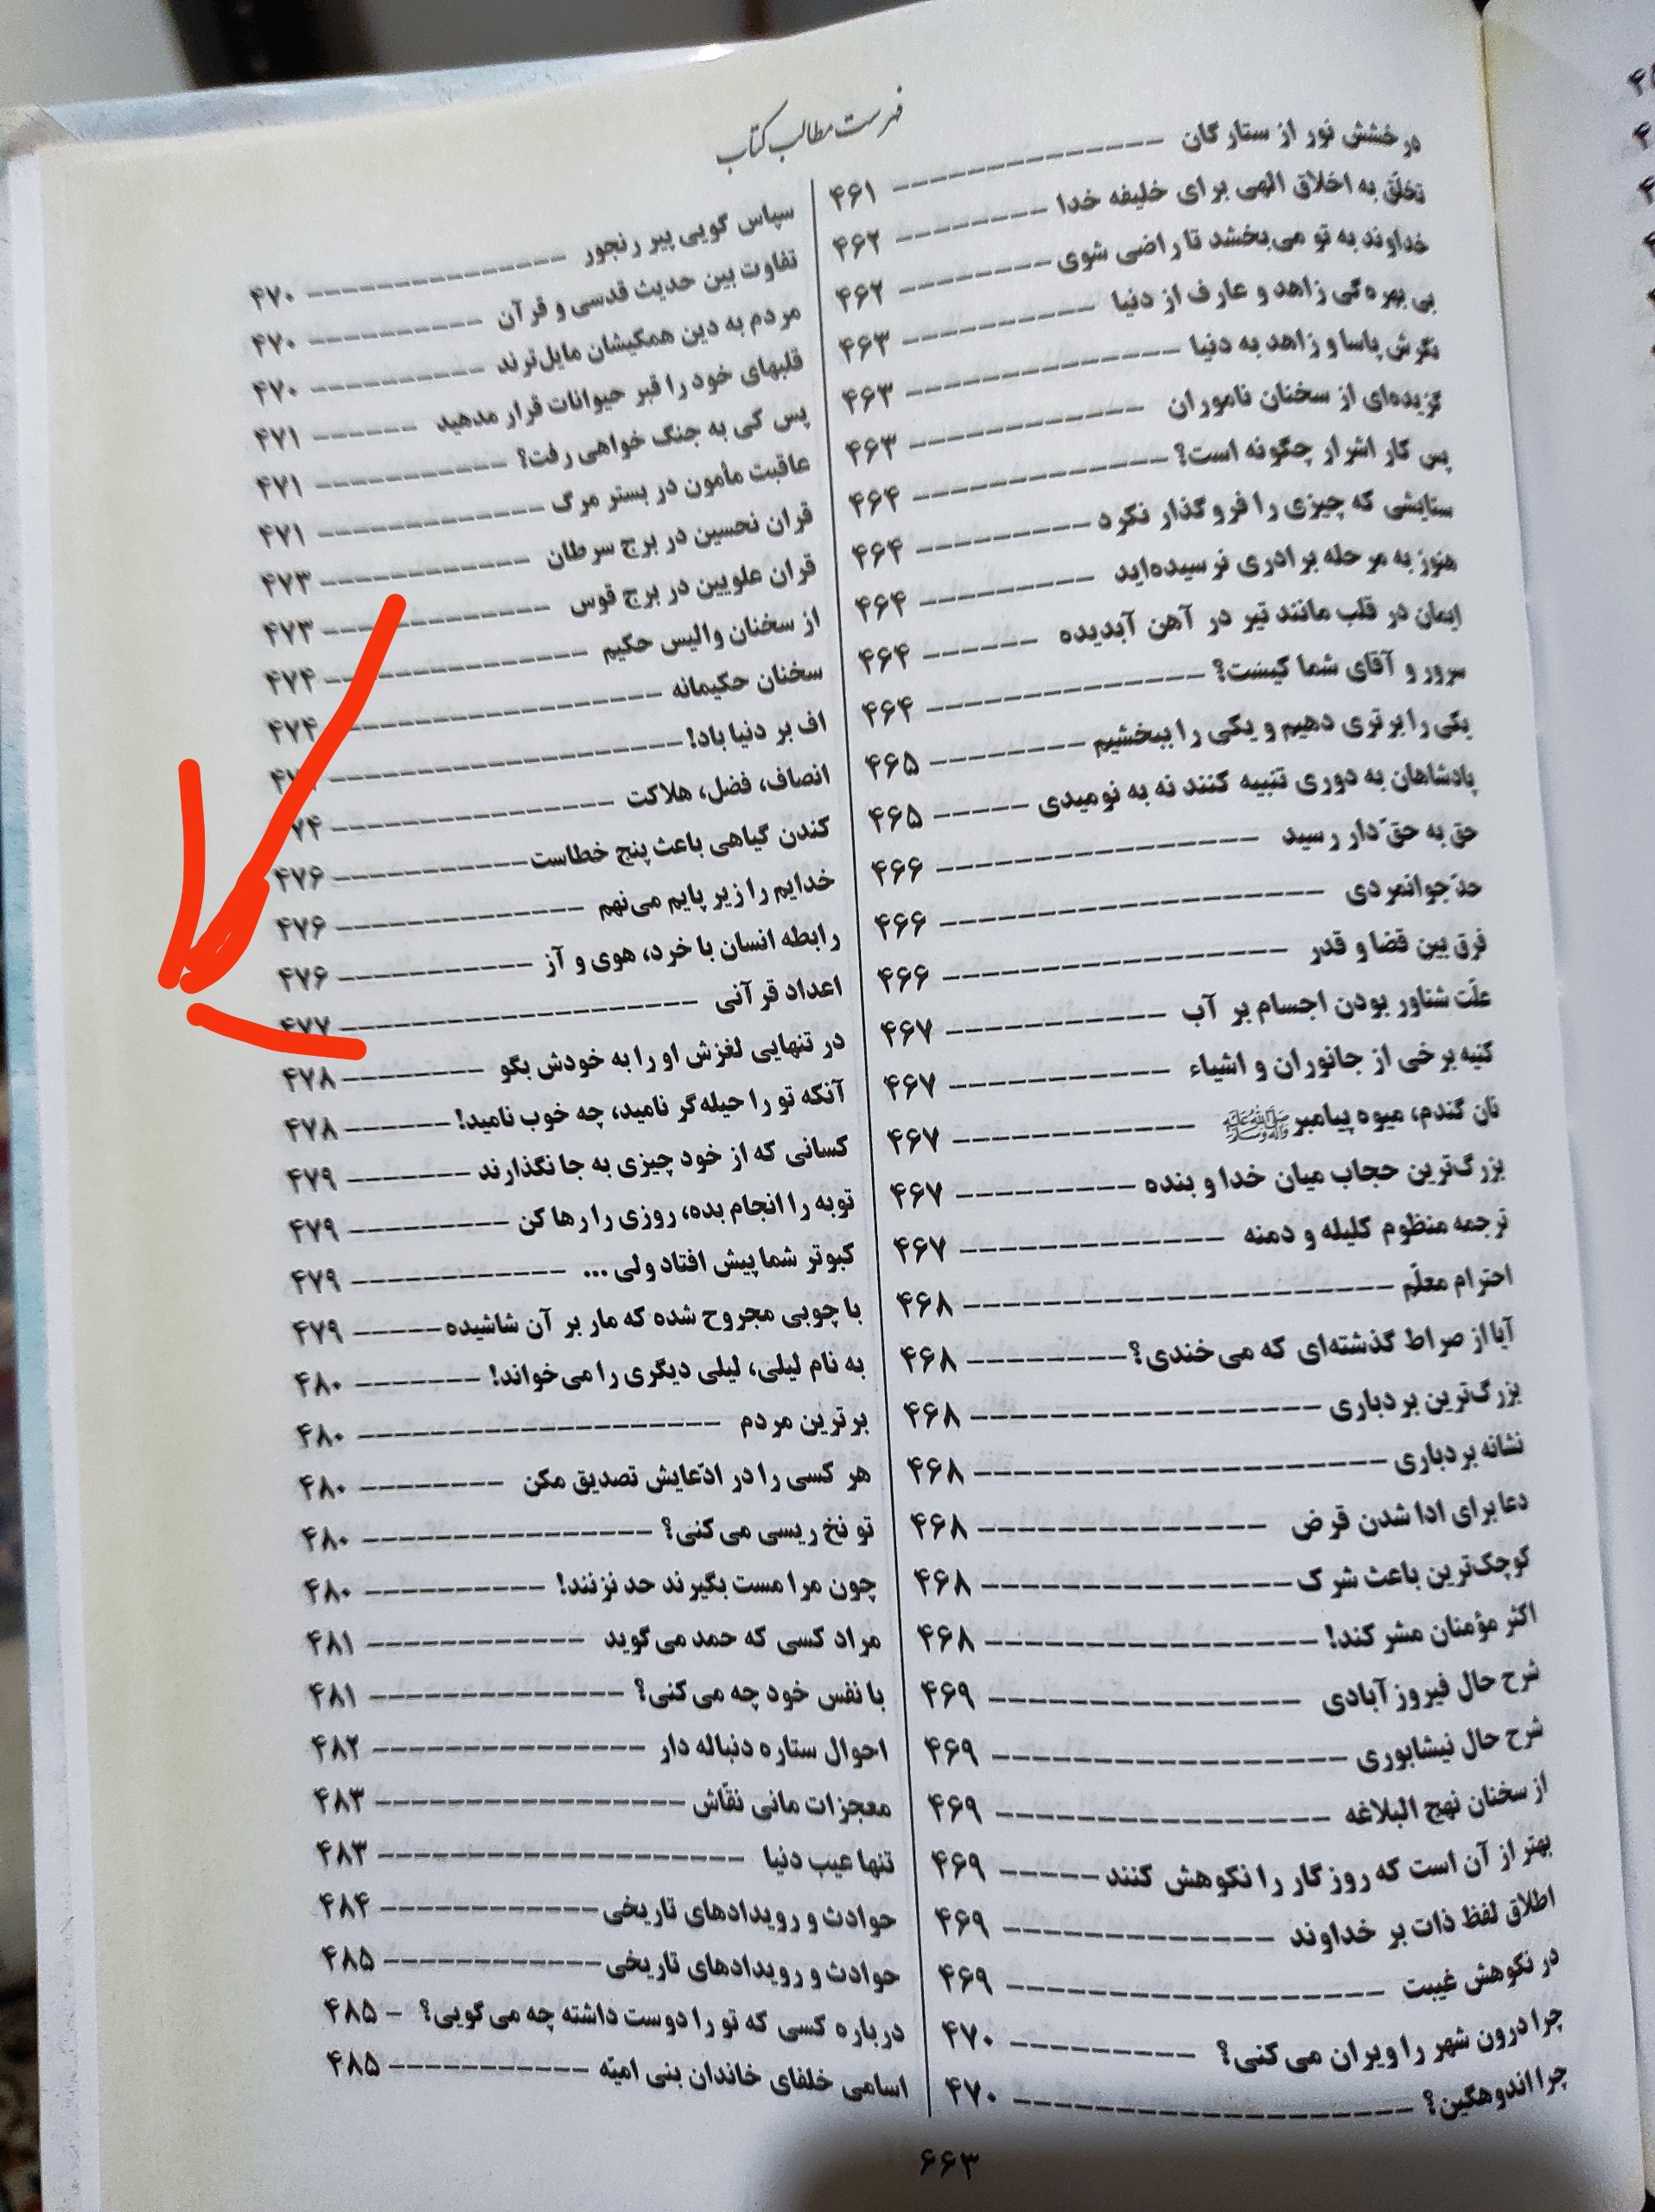 فهرست مطالب کتاب
درخشش نور از ستارگان ۴۶۱
تخلّق به اخلاق الهی برای خلیفه خدا ۴۶۲
خداوند به تو می‌بخشد تا راضی شوی ۴۶۲
بی بهره‌گی زاهد و عارف از دنیا ۴۶۳
نگرش پاسا و زاهد به دنیا ۴۶۳
گزیده‌ای از سخنان ناموران ۴۶۳
پس کار اشرار چگونه است؟ ۴۶۴
ستایشی که چیزی را فروگذار نکرد ۴۶۴
هنوز به مرحله برادری نرسیده‌اید ۴۶۴
ایمان در قلب مانند تیر در آهن آبدیده ۴۶۴
سرور و آقای شما کیست؟ ۴۶۴
یکی را برتری دهیم و یکی را ببخشیم ۴۶۵
پادشاهان به دوری تنبیه کنند نه به نومیدی ۴۶۵
حق به حق‌ّدار رسید ۴۶۶
حدّ جوانمردی ۴۶۶
فرق بین قضا و قدر ۴۶۶
علّت شناور بودن اجسام بر آب ۴۶۷
کنیه برخی از جانوران و اشیاء ۴۶۷
نان گندم، میوه پیامبر ﷺ ۴۶۷
بزرگ‌ترین حجاب میان خدا و بنده ۴۶۷
ترجمه منظوم کلیله و دمنه ۴۶۷
احترام معلّم ۴۶۸
آیا از صراط گذشته‌ای که می‌خندی؟ ۴۶۸
بزرگ‌ترین بردباری ۴۶۸
نشانه بردباری ۴۶۸
دعا برای ادا شدن قرض ۴۶۸
کوچک‌ترین باعث شرک ۴۶۸
اکثر مؤمنان مشرکند! ۴۶۸
شرح حال فیروزآبادی ۴۶۹
شرح حال نیشابوری ۴۶۹
از سخنان نهج البلاغه ۴۶۹
بهتر از آن است که روزگار را نکوهش کنند ۴۶۹
اطلاق لفظ ذات بر خداوند ۴۶۹
در نکوهش غیبت ۴۶۹
چرا درون شهر را ویران می‌کنی؟ ۴۷۰
چرا اندوهگین؟ ۴۷۰
سپاس گویی پیر رنجور ۴۷۰
تفاوت بین حدیث قدسی و قرآن ۴۷۰
مردم به دین همگیشان مایل‌ترند ۴۷۰
قلبهای خود را قبر حیوانات قرار مدهید ۴۷۱
پس کی به جنگ خواهی رفت؟ ۴۷۱
عاقبت مأمون در بستر مرگ ۴۷۱
قران نحسین در برج سرطان ۴۷۳
قران علویین در برج قوس ۴۷۳
از سخنان والیس حکیم ۴۷۴
سخنان حکیمانه ۴۷۴
اف بر دنیا باد!
انصاف، فضل، هلاکت
کندن گیاهی باعث پنج خطاست ۴۷۶
خدایم را زیر پایم می‌نهم ۴۷۶
رابطه انسان با خرد، هوی و آز ۴۷۶
اعداد قرآنی ۴۷۷
در تنهایی لغزش او را به خودش بگو ۴۷۸
آنکه تو را حیله‌گر نامید، چه خوب نامید! ۴۷۸
کسانی که از خود چیزی به جا نگذارند ۴۷۹
توبه را انجام بده، روزی را رها کن ۴۷۹
کبوتر شما پیش افتاد ولی ... ۴۷۹
با چوبی مجروح شده که مار بر آن شاشیده ۴۷۹
به نام لیلی، لیلی دیگری را می‌خواند! ۴۸۰
برترین مردم ۴۸۰
هر کسی را در ادّعایش تصدیق مکن ۴۸۰
تو نخ ریسی می‌کنی؟ ۴۸۰
چون مرا مست بگیرند حد نزنند! ۴۸۰
مراد کسی که حمد می‌گوید ۴۸۱
با نفس خود چه می‌کنی؟ ۴۸۱
احوال ستاره دنباله دار ۴۸۲
معجزات مانی نقّاش ۴۸۳
تنها عیب دنیا ۴۸۳
حوادث و رویدادهای تاریخی ۴۸۴
حوادث و رویدادهای تاریخی ۴۸۵
درباره کسی که تو را دوست داشته چه می‌گویی؟ ۴۸۵
اسامی خلفای خاندان بنی امیّه ۴۸۵
۶۶۳